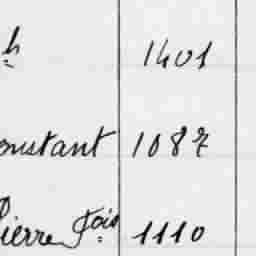 h 1401
onstant 1087
Pierre Fois 1110